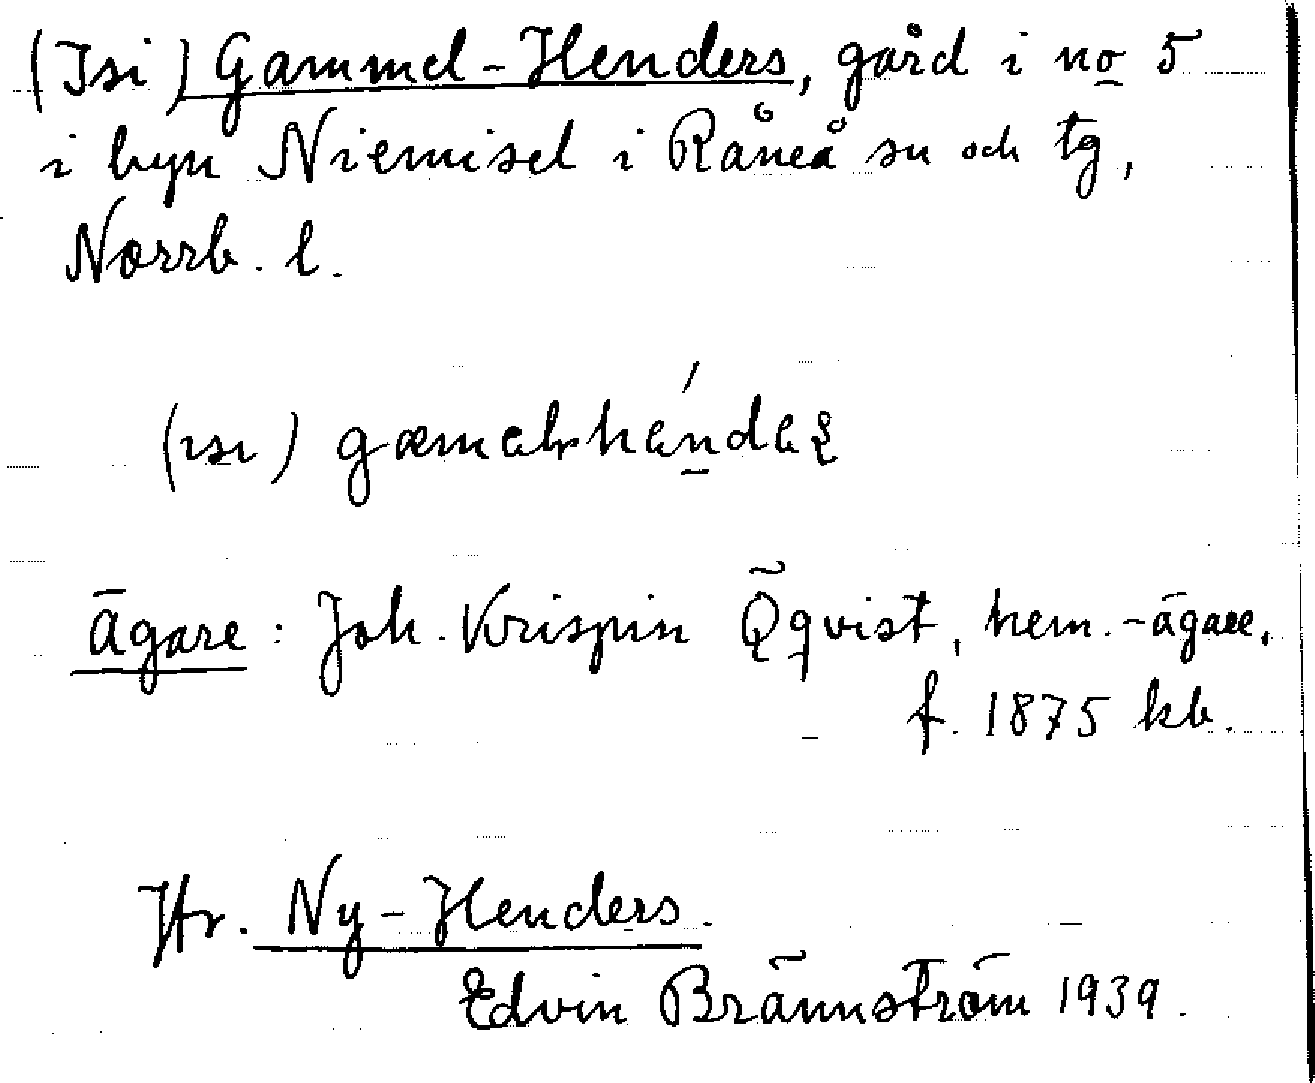 (Isi) Gammel-Henders, gård i no 5
i byn Niemisel i Råneå sn och tg,
Norrb. l.
(ısı)
ägare: Joh. Krispin Öqvist, hem.-ägare,
f. 1875 kb.
Jfr. Ny-Henders.
Edvin Brännström 1939.